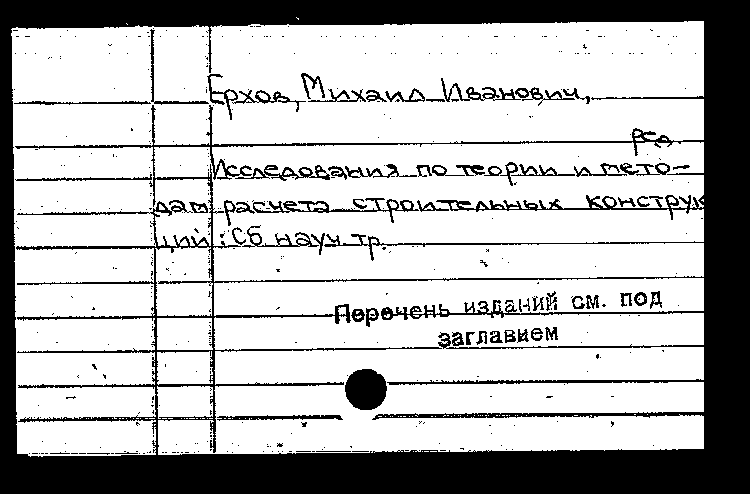 Ерхов, Михаил Иванович,
ред.
Исследования по теории и мето-
дам расчета строительных конструк
ций : Сб науч. тр.
Перечень изданий см. под
заглавием